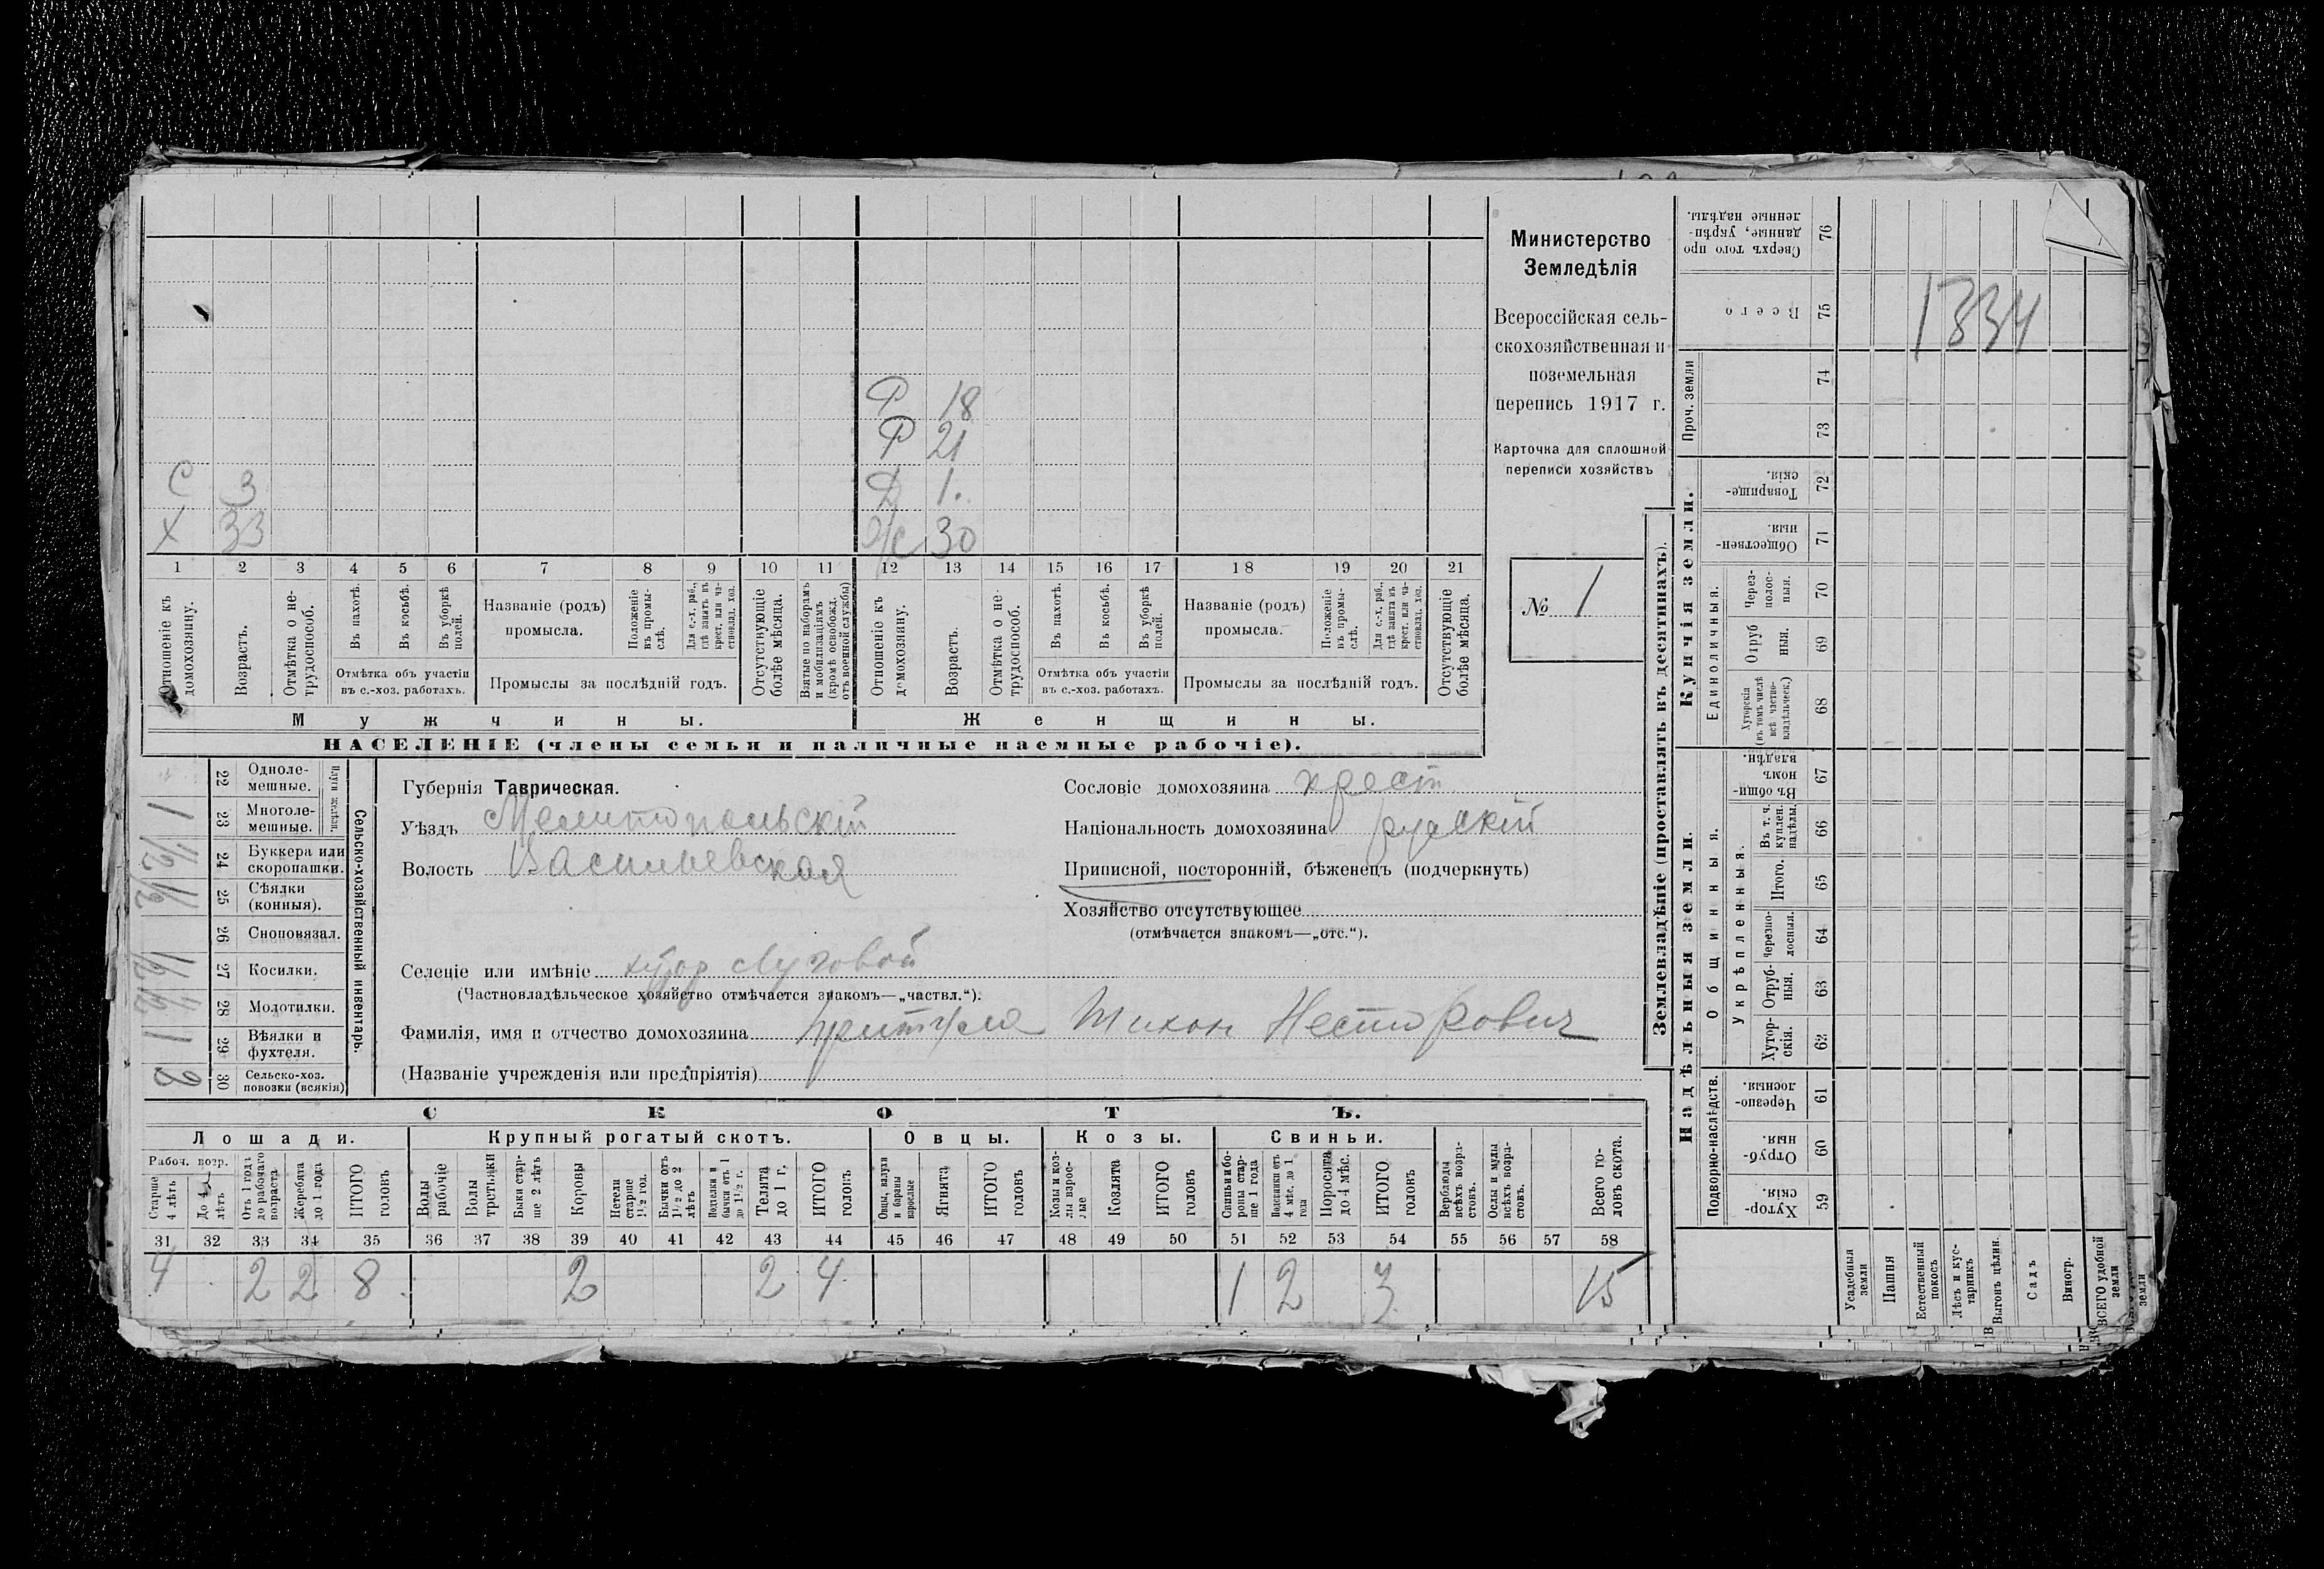 Министерство
Земледѣлія
Всероссійская сель-
скохозяйственная и
поземельная
перепись 1917 г.
Карточка для сплошной
переписи хозяйствъ
№ 1
Р 18
Р 21
С 3 Д 1.
Х 33 Ж 30
1 2 3 4 5 6 7 8 9 10 11 12 13 14 15 16 17 18 19 20 21
Отношеніе къ домохозяину.
Возрастъ.
Отмѣтка о не-трудоспособ.
Въ пахотѣ.
Въ косьбѣ.
Въ уборкѣ полей.
Отмѣтка объ участіи въ с.-хоз. работахъ.
Названіе (родъ) промысла.
Положеніе въ промы-слѣ.
Для с.-х. раб., гдѣ занятъ въ крест. или ча-стновлад. хоз.
Промыслы за послѣдній годъ.
Отсутствующіе болѣе мѣсяца.
Взятые по наборамъ и мобилизаціямъ (кромѣ освобожд. отъ военной службы)
Отношеніе къ домохозяину.
Возрастъ.
Отмѣтка о не-трудоспособ.
Въ пахотѣ.
Въ косьбѣ.
Въ уборкѣ полей.
Отмѣтка объ участіи въ с.-хоз. работахъ.
Названіе (родъ) промысла.
Положеніе въ промы-слѣ.
Для с.-х. раб., гдѣ занята въ крест. или ча-стновлад. хоз.
Промыслы за послѣдній годъ.
Отсутствующіе болѣе мѣсяца.
Мужчины. Женщины.
НАСЕЛЕНІЕ (члены семьи и наличные наемные рабочіе).
Сельско-хозяйственный инвентарь.
22 Одноле-мешные.
23 Многоле-мешные. 1
24 Буккера или скоропашки. 1/2
25 Сѣялки (конныя). 1/2
26 Сноповязал.
27 Косилки. 1/2
28 Молотилки. 1/2
29 Вѣялки и фухтеля. 1
30 Сельско-хоз. повозки (всякія)
Губернія Таврическая.
Уѣздъ Мелитопольскій
Волость Васильевская
Сословіе домохозяина крест
Національность домохозяина русскій
Приписной, посторонній, бѣженецъ (подчеркнуть)
Хозяйство отсутствующее
(отмѣчается знакомъ—„отс.“).
Селеніе или имѣніе хутор Луговой
(Частновладѣльческое хозяйство отмѣчается знакомъ—„частвл.“).
Фамилія, имя и отчество домохозяина Притула Тихон Нестерович
(Названіе учрежденія или предпріятія)
СКОТЪ.
Лошади. Крупный рогатый скотъ. Овцы. Козы. Свиньи.
Рабоч. возр.
Старше 4 лѣтъ
До 4-хъ лѣтъ
Отъ 1 года до рабочаго возраста
Жеребята до 1 года
ИТОГО головъ
Волы рабочіе
Волы третьяки
Быки стар-ше 2 лѣтъ
Коровы
Нетели старше 1½ год.
Бычки отъ 1½ до 2 лѣтъ
Подтелки и бычки отъ 1 до 1½ г.
Телята до 1 г.
ИТОГО головъ
Овцы, валухи и бараны взрослые
Ягнята
ИТОГО головъ
Козы и коз-лы взрос-лые
Козлята
ИТОГО головъ
Свиньи и бо-ровы стар-ше 1 года
Подсвинки отъ 4 мѣс. до 1 года
Поросята до 4 мѣс.
ИТОГО головъ
Верблюды всѣхъ возра-стовъ.
Ослы и мулы всѣхъ возра-стовъ.
Всего го-ловъ скота.
31 32 33 34 35 36 37 38 39 40 41 42 43 44 45 46 47 48 49 50 51 52 53 54 55 56 57 58
4 2 2 8 2 2 4 1 2 3 15
Землевладѣніе (проставлять въ десятинахъ).
Купчія земли.
Надѣльныя земли.
Сверхъ того про-данные, укрѣп-ленные надѣлы. 76
Всего 75
1334
Проч. земли 74 73
Товарище-скія. 72
Обществен-ныя. 71
Единоличныя.
Через-полос-ныя. 70
Отруб-ныя. 69
Хуторскія (въ томъ числѣ всѣ частно-владѣльческ.) 68
Общинныя.
Въ общи-номъ владѣн. 67
Укрѣпленныя.
Въ т. ч. куплен. надѣлы. 66
Итого. 65
черезпо-лосныя. 64
Отруб-ныя. 63
Хутор-скія. 62
Подворно-наслѣдств.
Черезпо-лосныя. 61
Отруб-ныя. 60
Хутор-скія. 59
Усадебныя земли
Пашня
Естественный покосъ
Лѣсъ и кус-тарникъ
Выгонъ цѣлин.
Садъ
Виногр.
ВСЕГО удобной земли